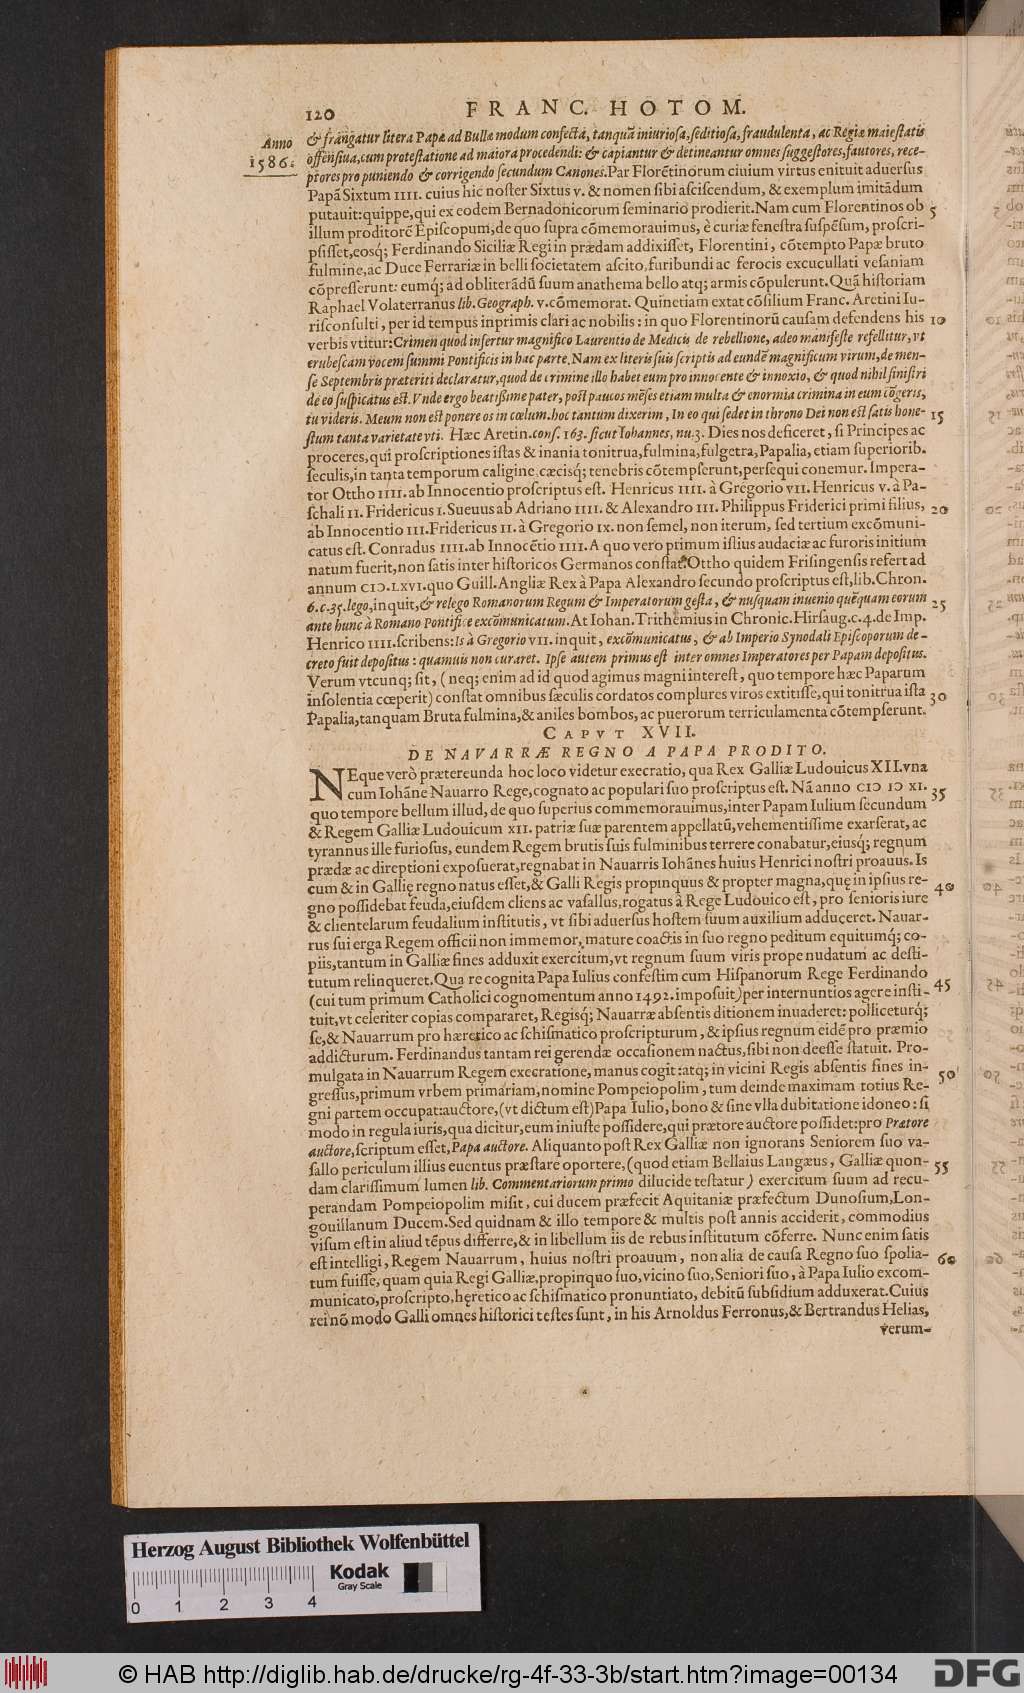 120 FRANC. HOTOM.
Anno
1586.
& frangatur litera Papæ ad Bullæ modum confectā, tanquā iniuriosa, seditiosa, fraudulenta, ac Regiæ maiestatis
offensiua, cum protestatione ad maiora procedendi: & capiantur & detineantur omnes suggestores, fautores, rece-
ptores pro puniendo & corrigendo secundum Canones. Par Florētinorum ciuium virtus enituit aduersus
Papā Sixtum IIII. cuius hic noster Sixtus v. & nomen sibi asciscendum, & exemplum imitādum
putauit: quippe, qui ex eodem Bernadonicorum seminario prodierit. Nam cum Florentinos ob 5
illum proditorē Episcopum, de quo supra cōmemorauimus, è curiæ fenestra suspēsum, proscri-
psisset, eosq́; Ferdinando Siciliæ Regi in prædam addixisset, Florentini, cōtempto Papæ bruto
fulmine, ac Duce Ferrariæ in belli societatem ascito, furibundi ac ferocis excucullati vesaniam
cōpresserunt: eumq́; ad obliterādū suum anathema bello atq; armis cōpulerunt. Quā historiam
Raphael Volaterranus lib. Geograph. v. cōmemorat. Quinetiam extat cōsilium Franc. Aretini Iu-
risconsulti, per id tempus inprimis clari ac nobilis: in quo Florentinorū causam defendens his 10
verbis vtitur: Crimen quod infertur magnifico Laurentio de Medicis de rebellione, adeo manifeste refellitur, vt
erubescam vocem summi Pontificis in hac parte. Nam ex literis suis scriptis ad eundē magnificum virum, de men-
se Septembris præteriti declaratur, quod de crimine illo habet eum pro innocente & innoxio, & quod nihil sinistri
de eo suspicatus est. Vnde ergo beatissime pater, post paucos mēses etiam multa & enormia crimina in eum cōgeris,
tu videris. Meum non est ponere os in cœlum. hoc tantum dixerim, In eo qui sedet in throno Dei non est satis hone- 15
stum tanta varietate vti. Hæc Aretin. cons. 163. sicut Iohannes, nu. 3. Dies nos deficeret, si Principes ac
proceres, qui proscriptiones istas & inania tonitrua, fulmina, fulgetra, Papalia, etiam superiorib.
seculis, in tanta temporum caligine, cæcisq́; tenebris cōtempserunt, persequi conemur. Impera-
tor Ottho IIII. ab Innocentio proscriptus est. Henricus IIII. à Gregorio VII. Henricus v. à Pa-
schali II. Fridericus I. Sueuus ab Adriano IIII. & Alexandro III. Philippus Friderici primi filius, 20
ab Innocentio III. Fridericus II. à Gregorio IX. non semel, non iterum, sed tertium excōmuni-
catus est. Conradus IIII. ab Innocētio IIII. A quo vero primum istius audaciæ ac furoris initium
natum fuerit, non satis inter historicos Germanos constat. Ottho quidem Frisingensis refert ad
annum CIↃ.LXVI. quo Guill. Angliæ Rex à Papa Alexandro secundo proscriptus est, lib. Chron.
6. c. 35. lego, inquit, & relego Romanorum Regum & Imperatorum gesta, & nusquam inuenio quēquam eorum 25
ante hunc à Romano Pontifice excōmunicatum. At Iohan. Trithemius in Chronic. Hirsaug. c. 4. de Imp.
Henrico IIII. scribens: Is à Gregorio VII. inquit, excōmunicatus, & ab Imperio Synodali Episcoporum de-
creto fuit depositus: quamuis non curaret. Ipse autem primus est inter omnes Imperatores per Papam depositus.
Verum vtcunq; sit, (neq; enim ad id quod agimus magni interest, quo tempore hæc Paparum
insolentia cœperit) constat omnibus sæculis cordatos complures viros extitisse, qui tonitrua ista 30
Papalia, tanquam Bruta fulmina, & aniles bombos, ac puerorum terriculamenta cōtempserunt.
CAPVT XVII.
DE NAVARRÆ REGNO A PAPA PRODITO.
NEque verò prætereunda hoc loco videtur execratio, qua Rex Galliæ Ludouicus XII. vna
cum Iohāne Nauarro Rege, cognato ac populari suo proscriptus est. Nā anno CIↃ IↃ XI. 35
quo tempore bellum illud, de quo superius commemorauimus, inter Papam Iulium secundum
& Regem Galliæ Ludouicum XII. patriæ suæ parentem appellatū, vehementissime exarserat, ac
tyrannus ille furiosus, eundem Regem brutis suis fulminibus terrere conabatur, eiusq́; regnum
prædæ ac direptioni exposuerat, regnabat in Nauarris Iohānes huius Henrici nostri proauus. Is
cum & in Gallię regno natus esset, & Galli Regis propinquus & propter magna, quę in ipsius re- 40
gno possidebat feuda, eiusdem cliens ac vasallus, rogatus à Rege Ludouico est, pro senioris iure
& clientelarum feudalium institutis, vt sibi aduersus hostem suum auxilium adduceret. Nauar-
rus sui erga Regem officii non immemor, mature coactis in suo regno peditum equitumq́; co-
piis, tantum in Galliæ fines adduxit exercitum, vt regnum suum viris prope nudatum ac desti-
tutum relinqueret. Qua re cognita Papa Iulius confestim cum Hispanorum Rege Ferdinando 45
(cui tum primum Catholici cognomentum anno 1492. imposuit) per internuntios agere insti-
tuit, vt celeriter copias compararet, Regisq́; Nauarræ absentis ditionem inuaderet: polliceturq́;
se, & Nauarrum pro hæretico ac schismatico proscripturum, & ipsius regnum eidē pro præmio
addicturum. Ferdinandus tantam rei gerendæ occasionem nactus, sibi non deesse statuit. Pro-
mulgata in Nauarrum Regem execratione, manus cogit: atq; in vicini Regis absentis fines in- 50
gressus, primum vrbem primariam, nomine Pompeiopolim, tum deinde maximam totius Re-
gni partem occupat: auctore, (vt dictum est) Papa Iulio, bono & sine vlla dubitatione idoneo: si
modo in regula iuris, qua dicitur, eum iniuste possidere, qui prætore auctore possidet: pro Prætore
auctore, scriptum esset, Papa auctore. Aliquanto post Rex Galliæ non ignorans Seniorem suo va-
sallo periculum illius euentus præstare oportere, (quod etiam Bellaius Langæus, Galliæ quon- 55
dam clarissimum lumen lib. Commentariorum primo dilucide testatur) exercitum suum ad recu-
perandam Pompeiopolim misit, cui ducem præfecit Aquitaniæ præfectum Dunosium, Lon-
gouillanum Ducem. Sed quidnam & illo tempore & multis post annis acciderit, commodius
visum est in aliud tēpus differre, & in libellum iis de rebus institutum cōferre. Nunc enim satis
est intelligi, Regem Nauarrum, huius nostri proauum, non alia de causa Regno suo spolia- 60
tum fuisse, quam quia Regi Galliæ, propinquo suo, vicino suo, Seniori suo, à Papa Iulio excom-
municato, proscripto, hęretico ac schismatico pronuntiato, debitū subsidium adduxerat. Cuius
rei nō modo Galli omnes historici testes sunt, in his Arnoldus Ferronus, & Bertrandus Helias,
verum-
Herzog August Bibliothek Wolfenbüttel
Kodak
Gray Scale
0 1 2 3 4
© HAB http://diglib.hab.de/drucke/rg-4f-33-3b/start.htm?image=00134
DFG